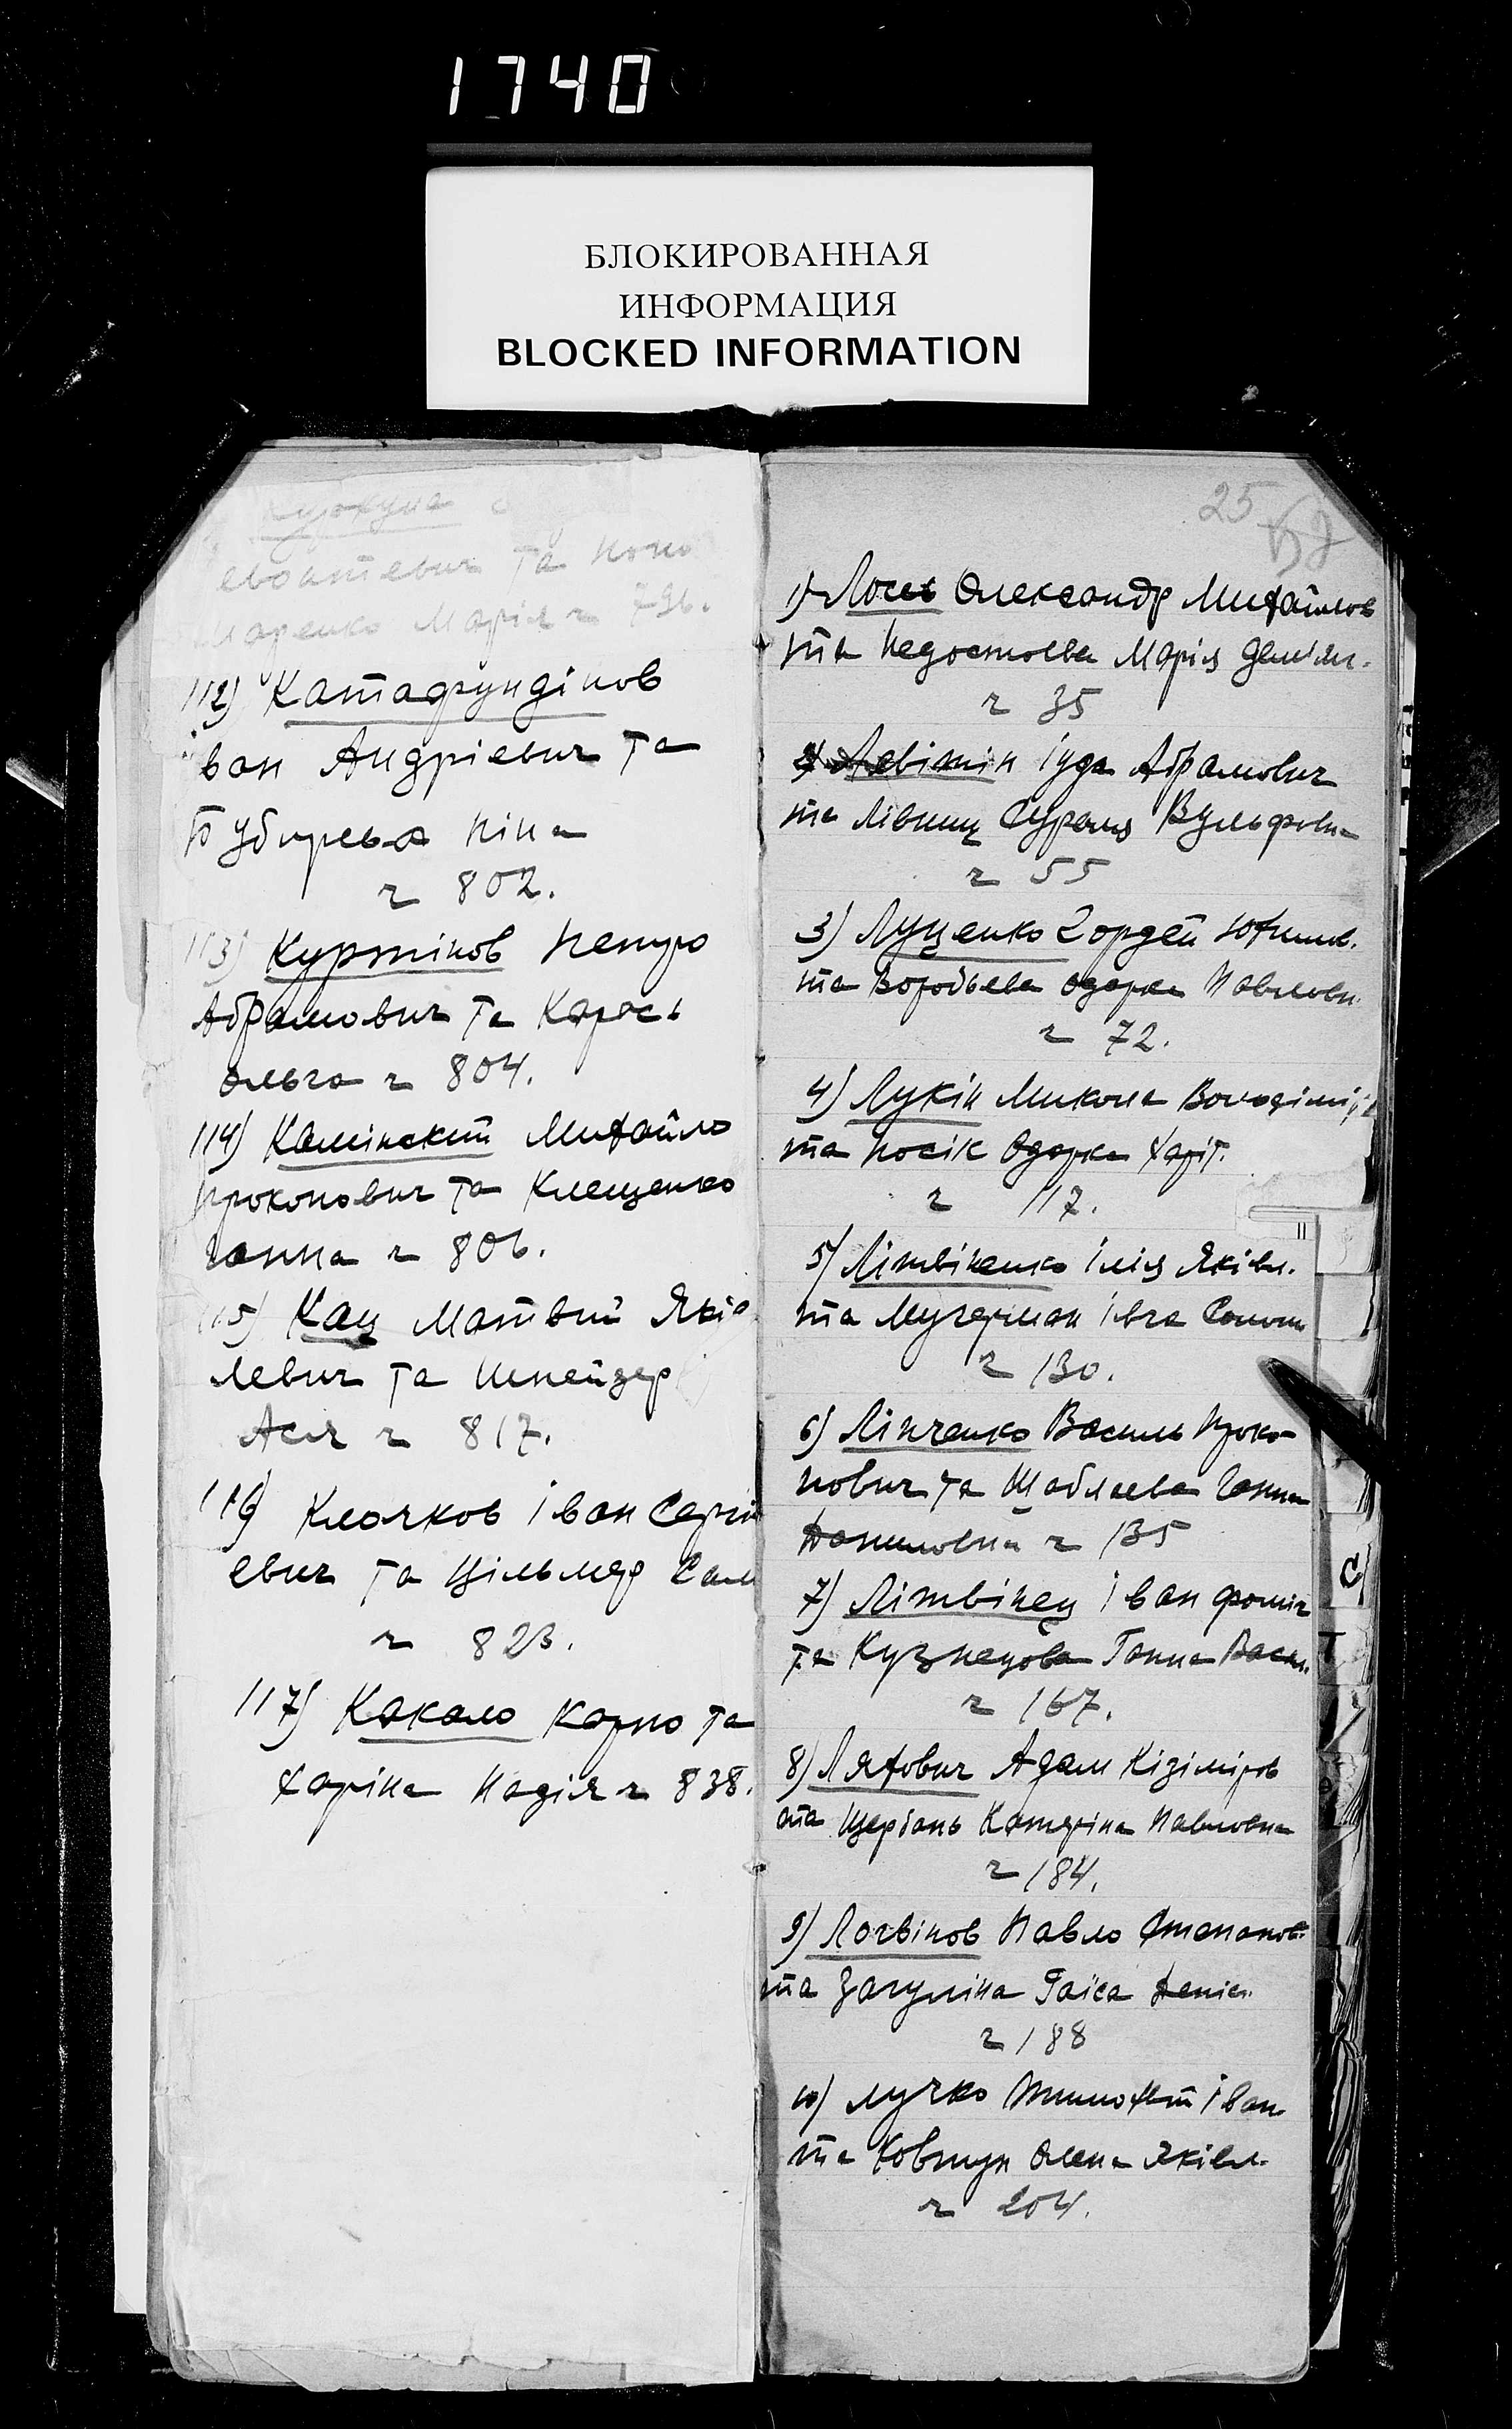 1740
БЛОКИРОВАННАЯ
ИНФОРМАЦИЯ
BLOCKED INFORMATION
та
Марія ч 796.
112) Катафундінов
Іван Андрієвич та
Бубирьва Ніна
ч 802.
113) Куртінов Петро
Абрамович та Карась
Ольга ч 804.
114) Камінский Михайло
Прокопович та Клещенко
Ганна ч 806.
115) Кац Матвій Якіа
левич та Шнейзер
Ася ч 817.
116) Клочков Іван Сергій
евич та Сали
ч 823.
117) Какало Карпо та
Харіна Надія ч 838.
25
1) Лось Олександр Михайлов
та Недостоєва Марія Дем'ян.
ч 35
2) Левітін Іуда Абрамович
та Лівшиц Вульфовна
ч 55
3) Луценко Гордей Юхимов.
та Воробьева Одарка Павловн.
ч 72.
4) Лукін Микола
та Носік Одарка Харіт.
ч 117.
5) Літвіненко Ілія Яківл.
та Мучерман Івга
ч 130.
6) Лінченко Василь Проко-
пович та Шаблаева Ганна
Даниловна ч 135
7) Літвінец Іван Фоміч
та Кузнецова Ганна Васил.
ч 167.
8) Ляхович Адам Кізіміров
та Щербань Катеріна Павловна
ч 184.
9) Логвінов Павло Степанов.
та Загуліна Раіса Деніс.
ч 188
10) Лучко Тимофій Іван.
та Ковтун Олена Яківл.
ч 204.
С
Т